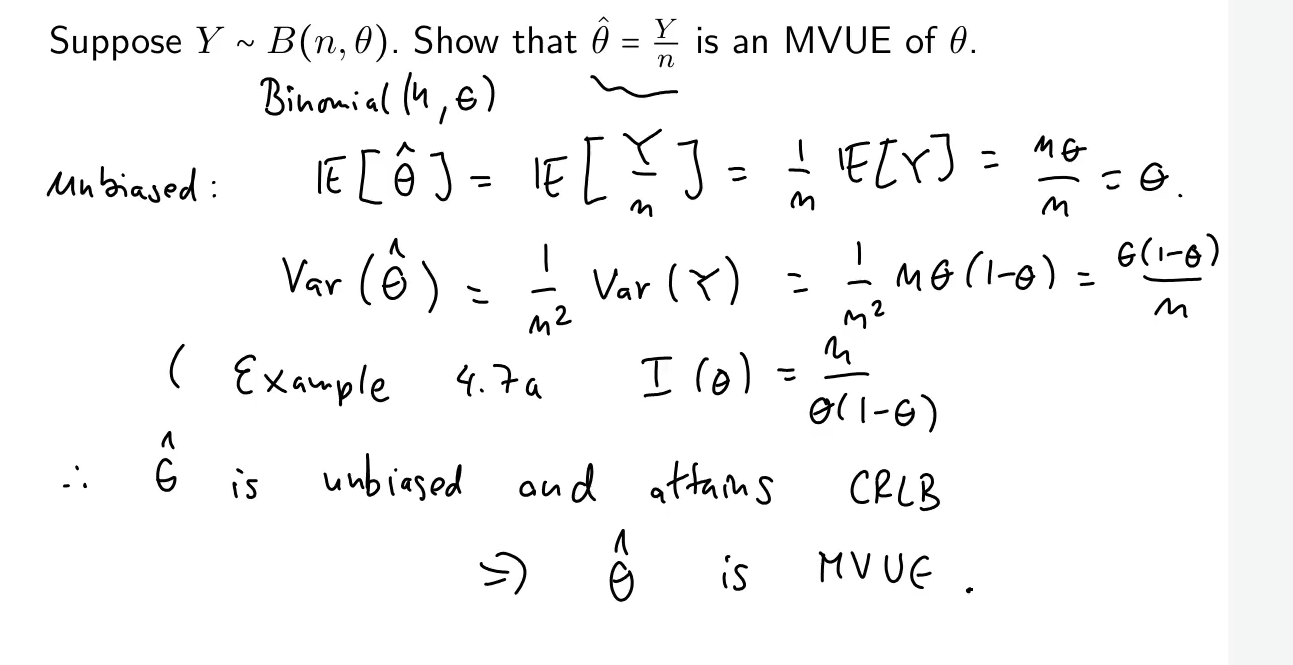 Suppose Y ~ B(n, θ). Show that θ̂ = Y/n is an MVUE of θ.
Binomial (n, θ)
Unbiased : IE[θ̂] = IE[Y/n] = 1/n IE[Y] = nθ/n = θ.
Var(θ̂) = 1/n² Var(Y) = 1/n² nθ(1-θ) = θ(1-θ)/n
( Example 4.7a I(θ) = n/θ(1-θ)
∴ θ̂ is unbiased and attains CRLB
⇒ θ̂ is MVUE.